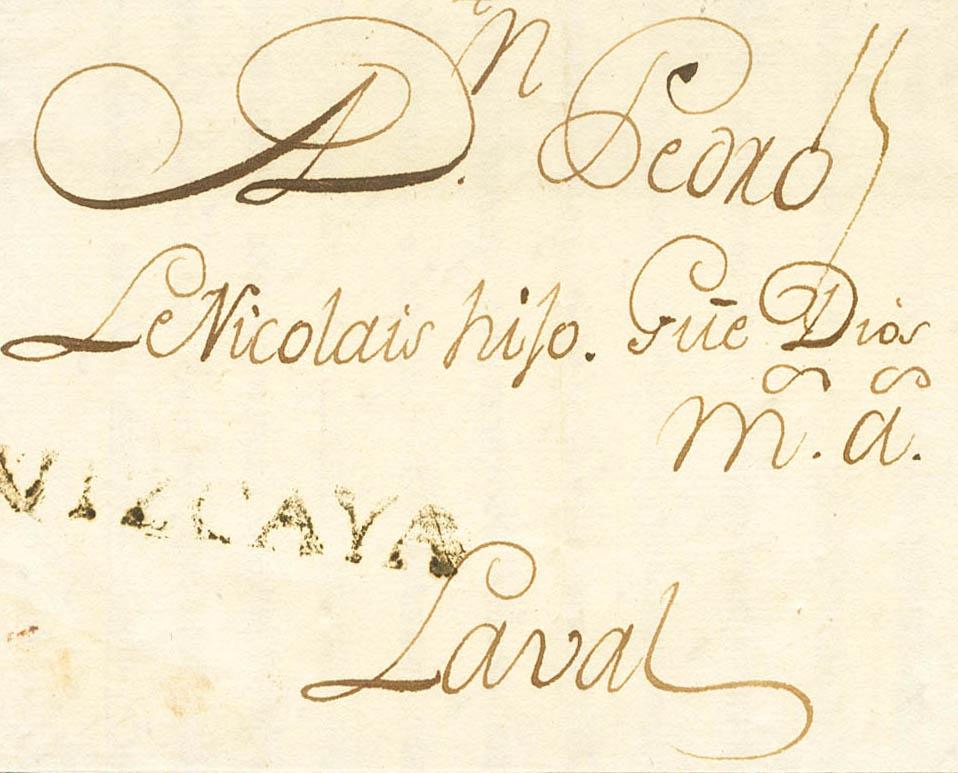 A Dn. Pedro
Le Nicolais hijo. Gūe Dios
m.s a.s
VIZCAYA
Laval